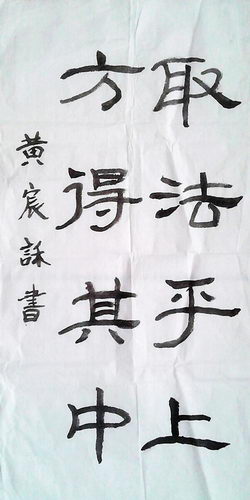 取法乎上
方得其中
黄宸詠書